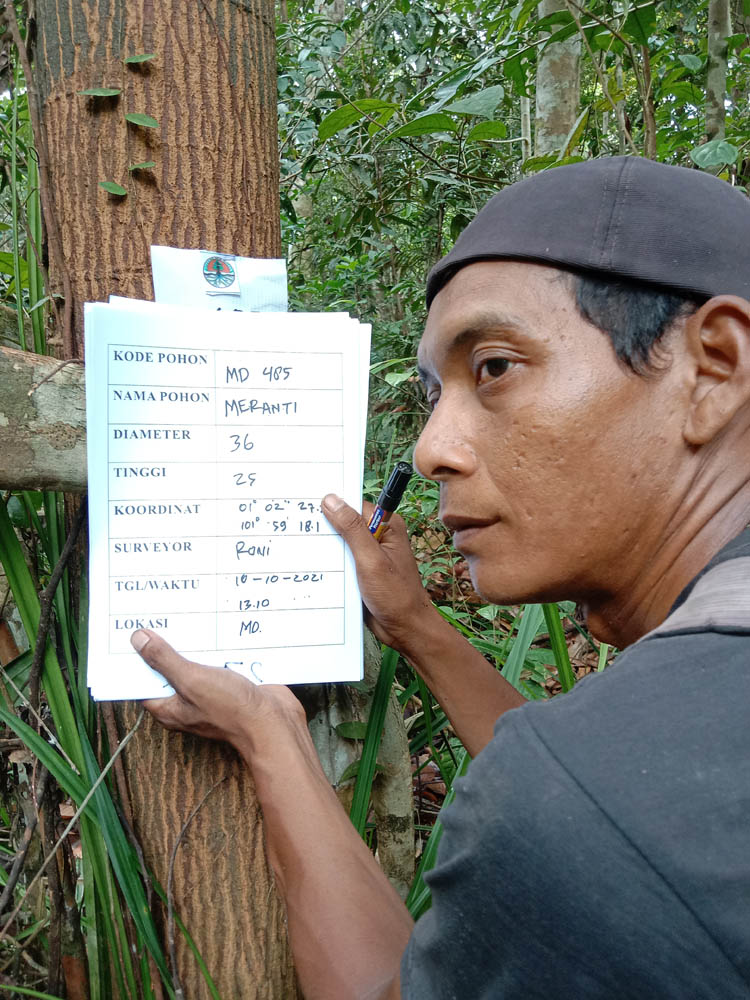 KODE POHON MD 485
NAMA POHON MERANTI
DIAMETER 36
TINGGI 25
KOORDINAT 01° 02" 27.
101° 59' 18.1
SURVEYOR RONI
TGL/WAKTU 10-10-2021
13.10
LOKASI MD.